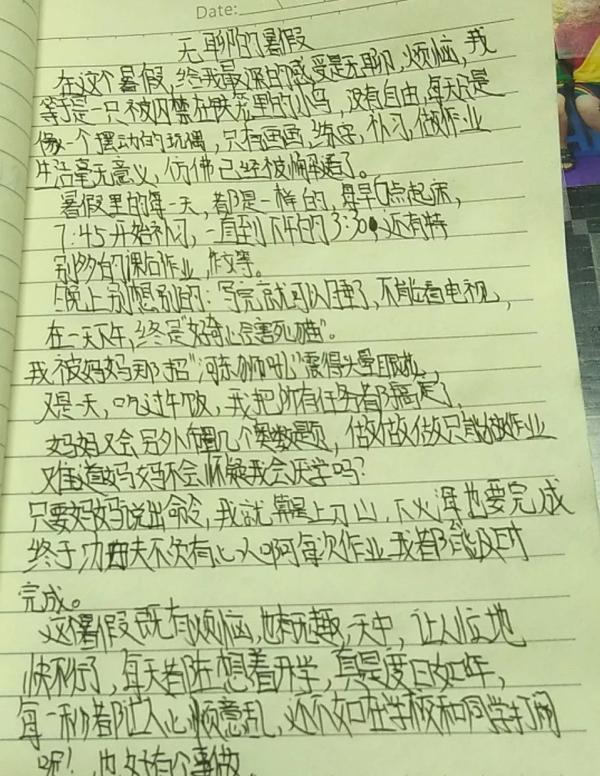 Date:
无聊的暑假
在这个暑假,给我最深的感受是无聊,烦恼,我
等于是一只被囚禁在铁笼里的小鸟,没有自由,每天只是
像一个摆动的玩偶,只有画画,练字,补习,做作业
生活毫无意义,仿佛已经被 透了。
暑假里的每一天,都是一样的,每早 点起床,
7:45开始补习,一直到下午的3:30,还有特
别多的课后作业,作文等。
晚上别想别的:写完就可以睡了,不能看电视,
在一天下午,终是"好奇心是害死猫"。
我被妈妈那招"河东狮吼"震得头晕眼花,
又是一天,吃过午饭,我把所有任务都搞定了,
妈妈又会另外布置几个奥数题,做做做只能做作业
难道妈妈不会怀疑我会厌学吗?
只要妈妈说出命令,我就算是上刀山,下火海也要完成
终于功夫不负有心人啊每次作业我都能及时
完成。
这暑假既有烦恼,也有无趣, 天中,让人忙地
快不行了,每天都在想着开学,真是度日如年,
每一秒都让人心烦意乱,还不如在学校和同学打闹
呢!也好有个事做